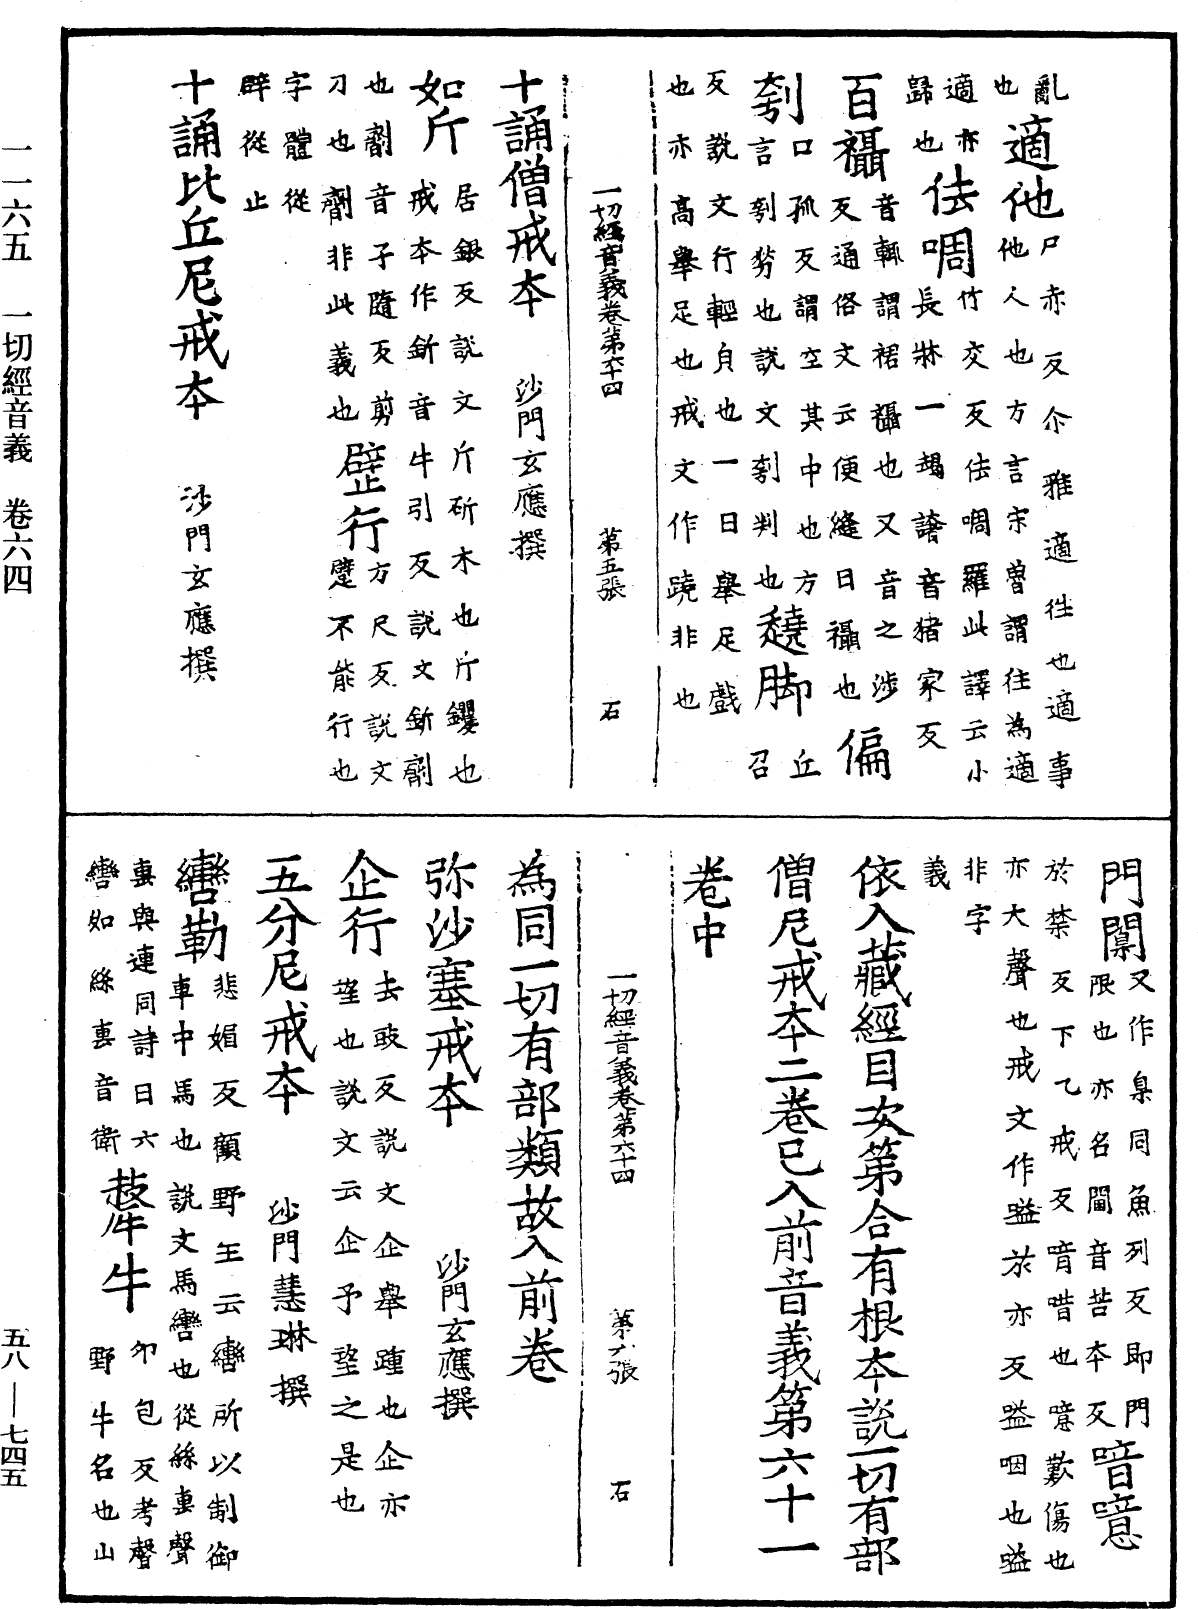 一一六五 一切經音義 卷六四
亂適他尸赤反尒雅適往也適事
也他他人也方言宋曽謂往為適
適亦佉啁竹交反佉啁羅此譯云小
歸也長牀一䞘譇音猪家反
百襵音輒謂裙襵也又音之渉偏
反通俗文云便縫曰襵也
刳口孤反謂空其中也方蹺脚丘
言刳劵也說文刳判也召
反說文行輕皃也一曰舉足戲
也亦高舉足也戒文作蹺非也
一切經音義卷第六十四 第五張 石
十誦僧戒本 沙門玄應撰
如斤居銀反説文斤斫木也斤钁也
戒本作釿音牛引反説文釿劑
也劑音子隨反剪躄行方尺反説文
刀也劑非此義也躄不能行也
字體從
辟從止
十誦比丘尼戒本 沙門玄應撰
門闑又作臬同魚列反即門喑噫
限也亦名閫音苦本反
於禁反下乙戒反喑唶也噫歎傷也
亦大聲也戒文作嗌於亦反嗌咽也嗌
非字
義
依入藏經目次第合有根本説一切有部
僧尼戒本二卷已入前音義第六十一
卷中
一切經音義卷第六十四 第六張 石
為同一切有部類故入前卷
弥沙塞戒本 沙門玄應撰
企行去豉反説文企舉踵也企亦
望也説文云企予望之是也
五分尼戒本 沙門慧琳撰
轡勒悲媚反顧野王云轡所以制御
車中馬也説文馬轡也從絲軎聲
軎與連同詩曰六犛牛卯包反考聲
轡如絲軎音衛野牛名也山
五八—七四五